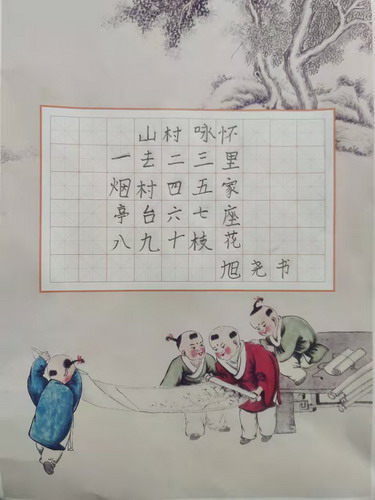 山村咏怀
一去二三里
烟村四五家
亭台六七座
八九十枝花
旭尧书